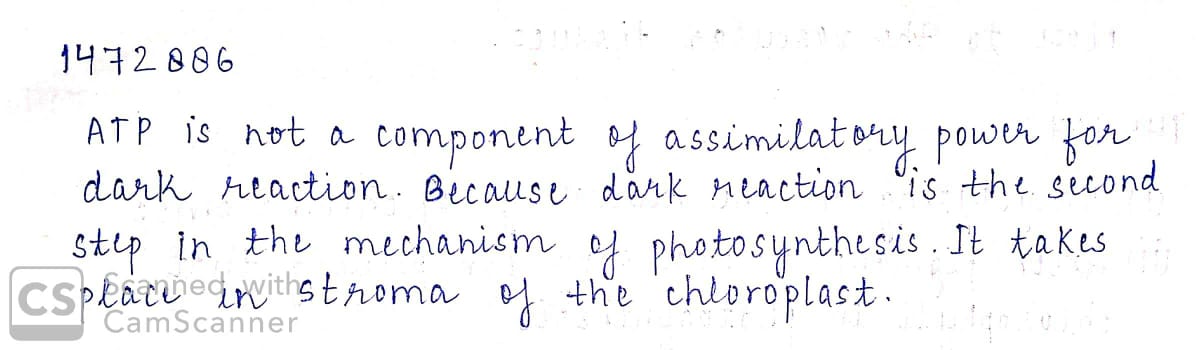 1472886
ATP is not a component of assimilatory power for
dark reaction. Because dark reaction is the second
step in the mechanism of photosynthesis. It takes
place in stroma of the chloroplast.
CS Scanned with
CamScanner